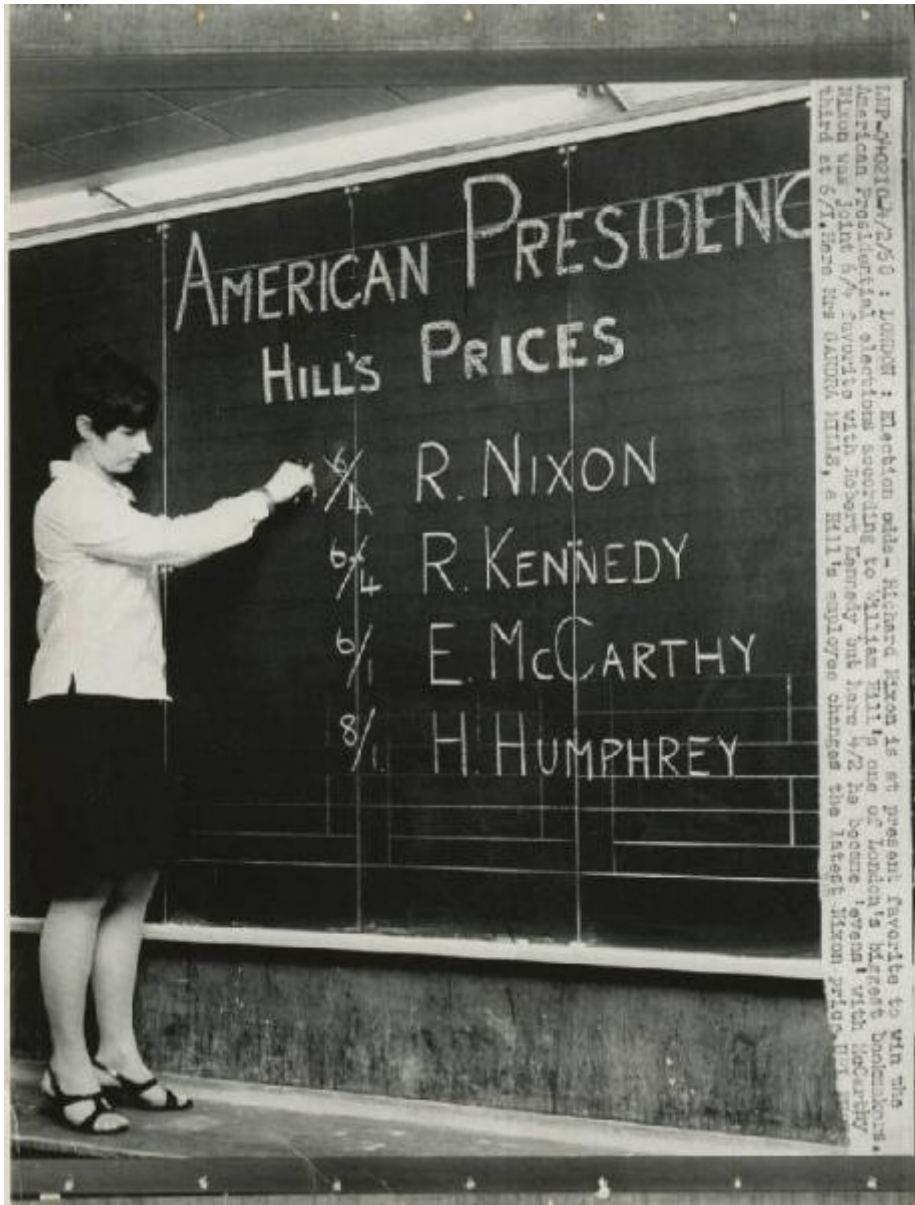 AMERICAN PRESIDENC
HILL'S PRICES
6/4 R. NIXON
6/4 R. KENNEDY
6/1 E. McCARTHY
8/1 H. HUMPHREY
LONDON : Election odds- Richard Nixon is at present favorite to win the
American Presidential elections according to William Hill's one of London's biggest bookmakers.
Nixon was joint 6/4 favorite with Robert Kennedy but here 4/2 he become 'evens' with McCarthy
third at 6/1.Here Mrs SANDRA MILLS, a Hill's employee changes the latest Nixon price.